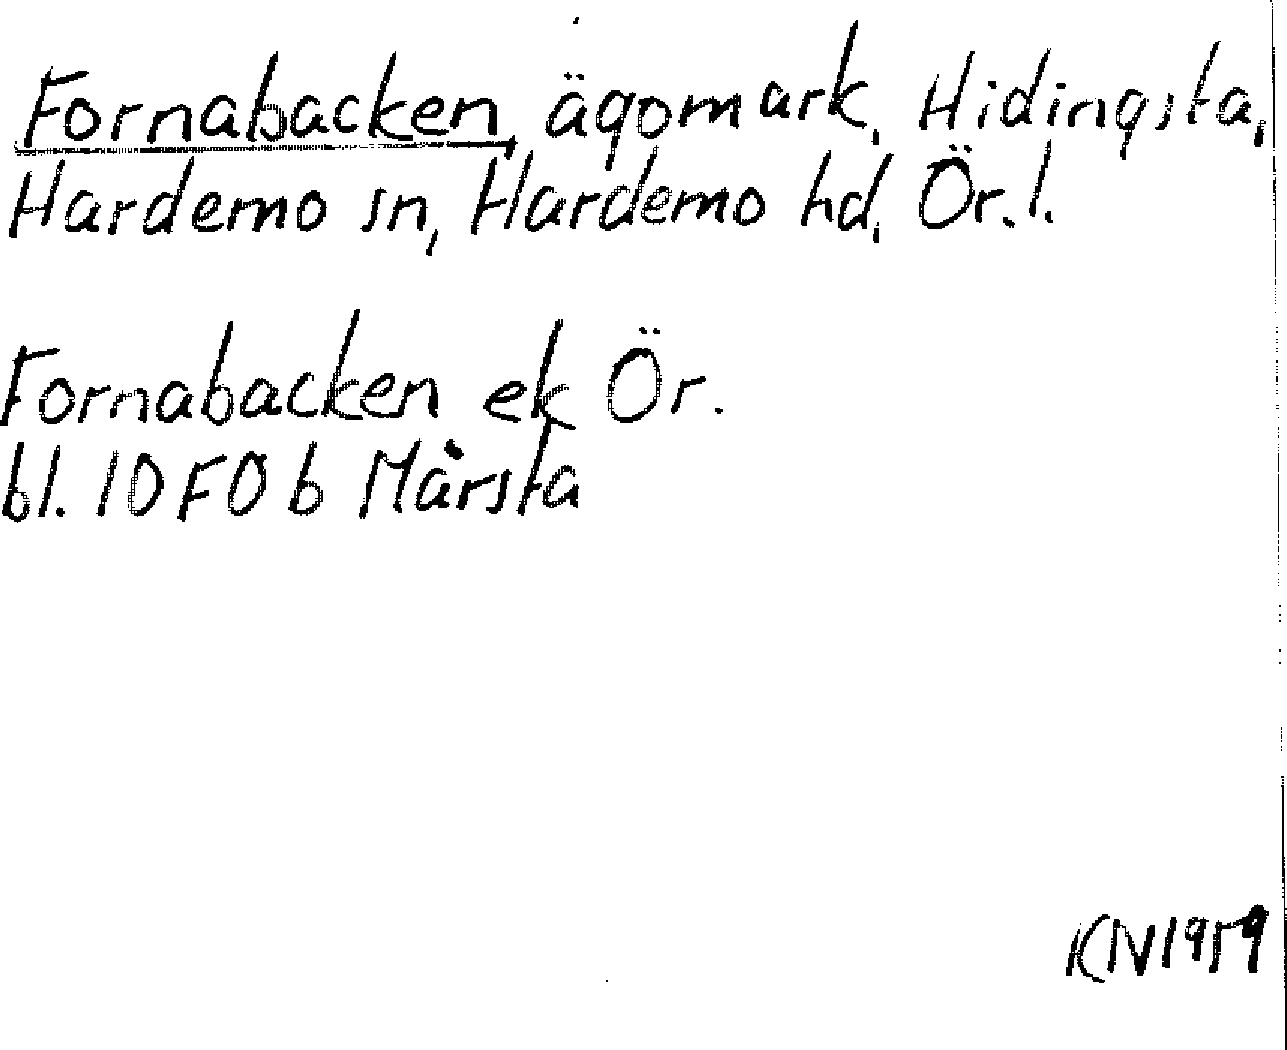 Fornabacken, ägomark, Hidingsta,
Hardemo sn, Hardemo hd, Ör. l.
Fornabacken ek Ör.
bl. 10F0b Mårsta
KN1959